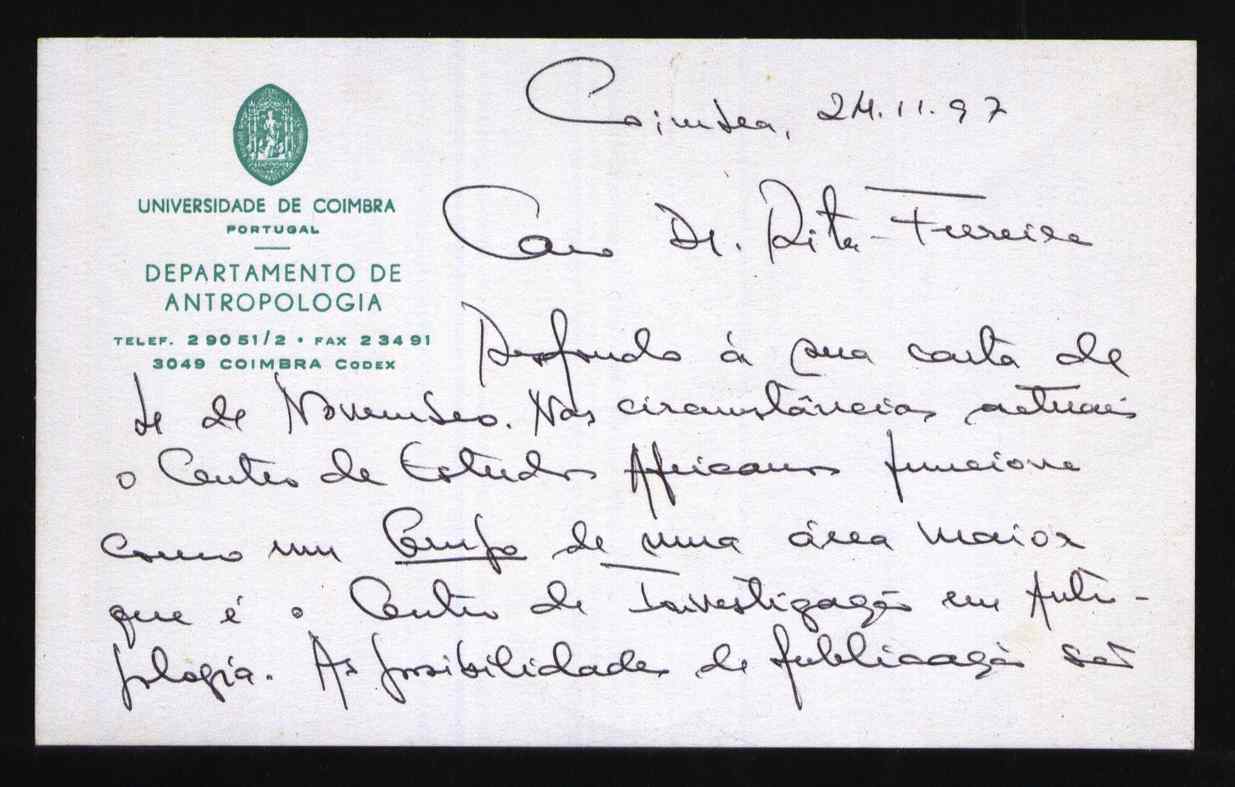 UNIVERSIDADE DE COIMBRA
PORTUGAL
DEPARTAMENTO DE
ANTROPOLOGIA
TELEF. 29051/2 • FAX 23491
3049 COIMBRA CODEX
Coimbra, 24.11.97
Caro Dr. Rita-Ferreira
Respondo à sua carta de
de Novembro. Nas circunstâncias actuais
o Centro de Estudos Africanos funciona
como um Campo de uma área maior
que é o Centro de Investigação em Antro-
pologia. As possibilidades de publicação são